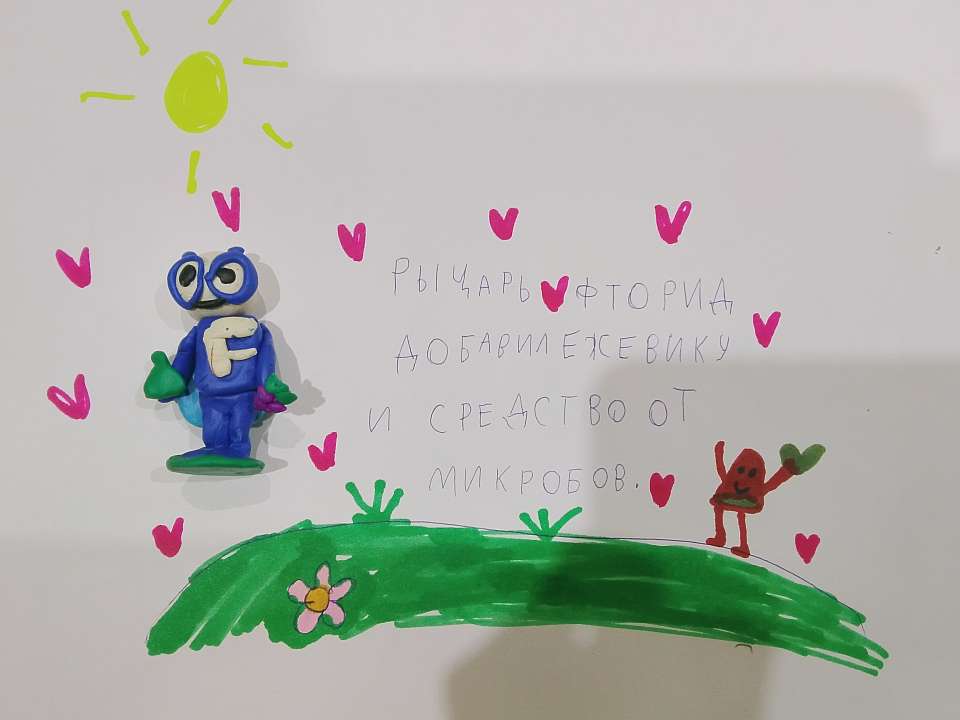 F
РЫЦАРЬ ФТОРИД
ДОБАВИЛ ЕЖЕВИКУ
И СРЕДСТВО ОТ
МИКРОБОВ.